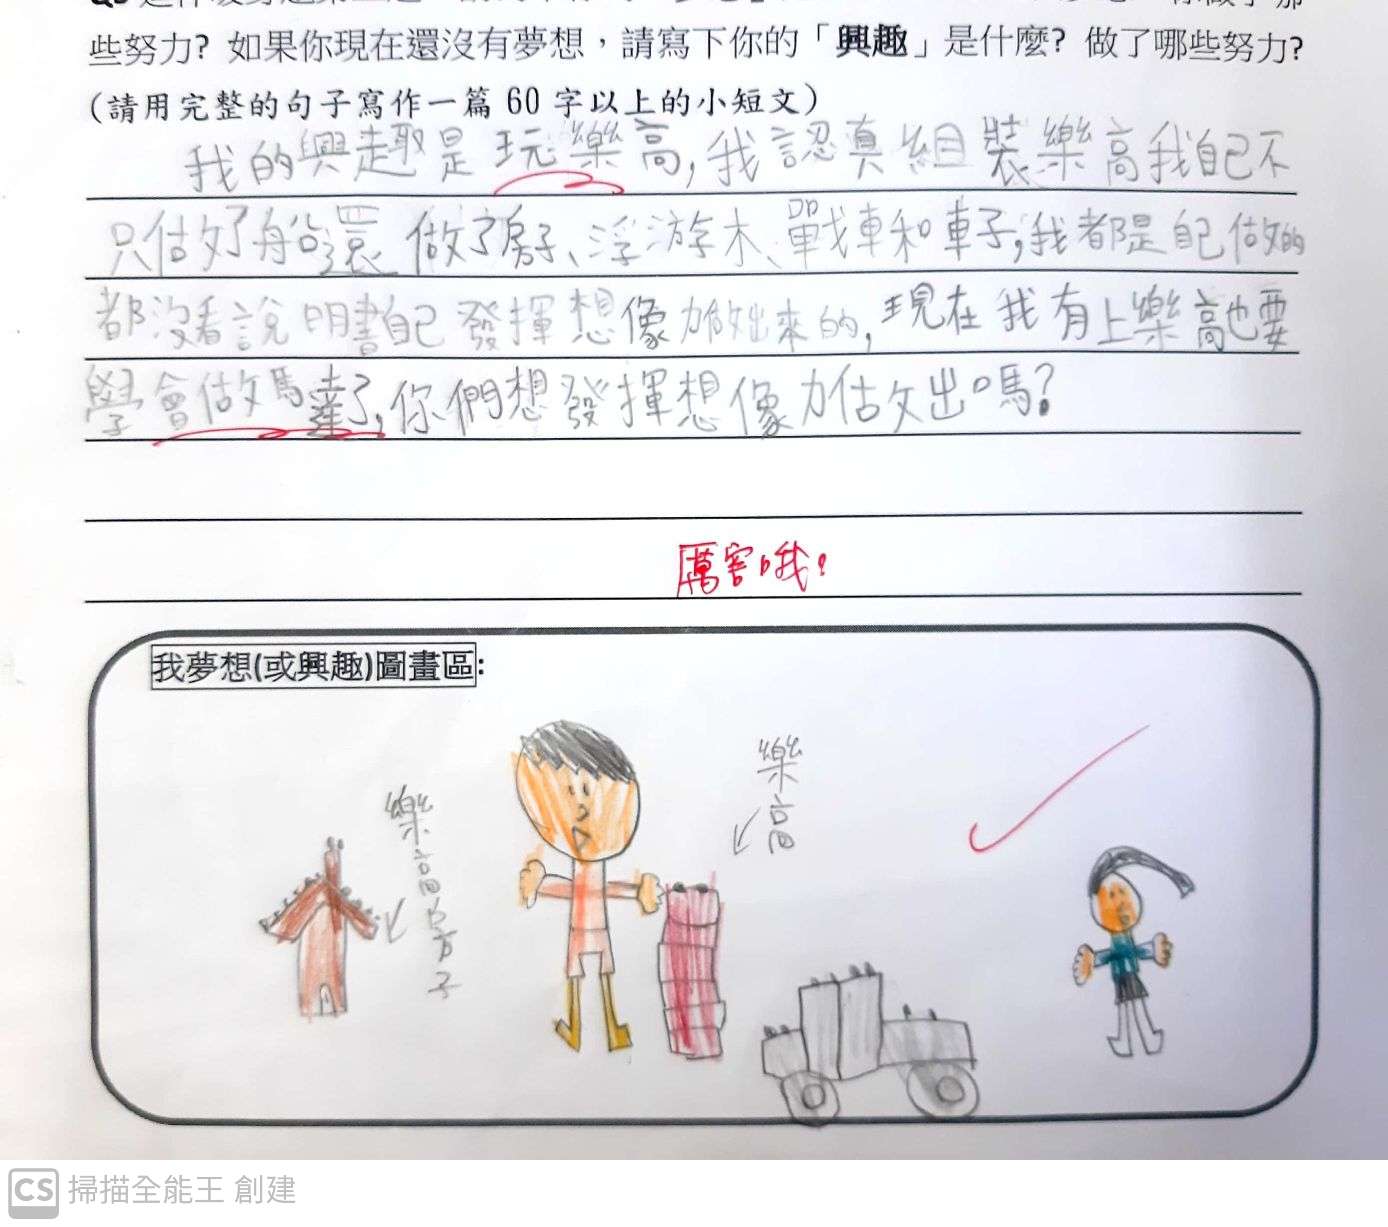 些努力? 如果你現在還沒有夢想，請寫下你的「興趣」是什麼? 做了哪些努力?
(請用完整的句子寫作一篇 60 字以上的小短文)
我的興趣是玩樂高,我認真組裝樂高我自己不
只做了船還做了房子、浮游木、戰車和車子,我都是自己做的
都沒看說明書自己發揮想像力做出來的,現在我有上樂高也要
學會做馬達了,你們想發揮想像力做出嗎?
厲害哦!
我夢想(或興趣)圖畫區:
樂高
樂高房子
CS 掃描全能王 創建